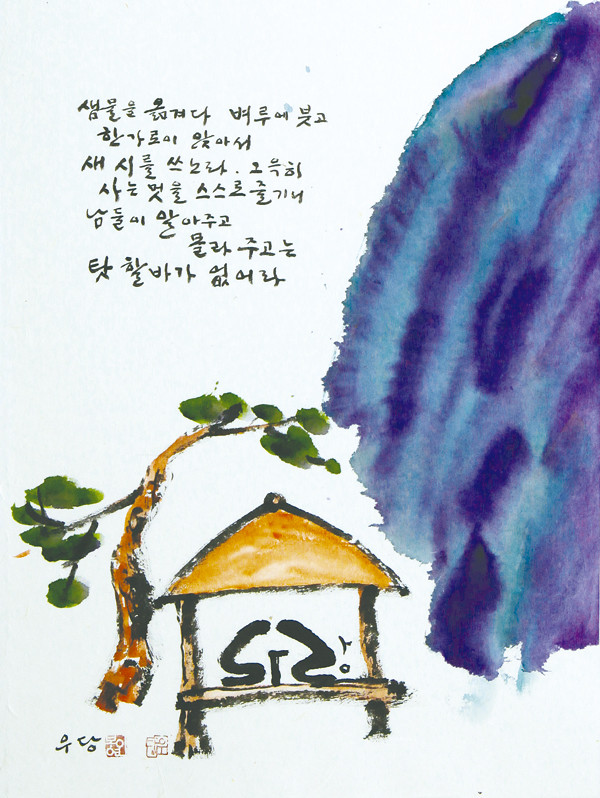 샘물을 옮겨다 벼루에 붓고
한가로이 앉아서
새 시를 쓰노라. 그윽히
사는 멋을 스스로 즐기니
남들이 알아주고
몰라 주고는
탓 할바가 없어라
사랑
우당